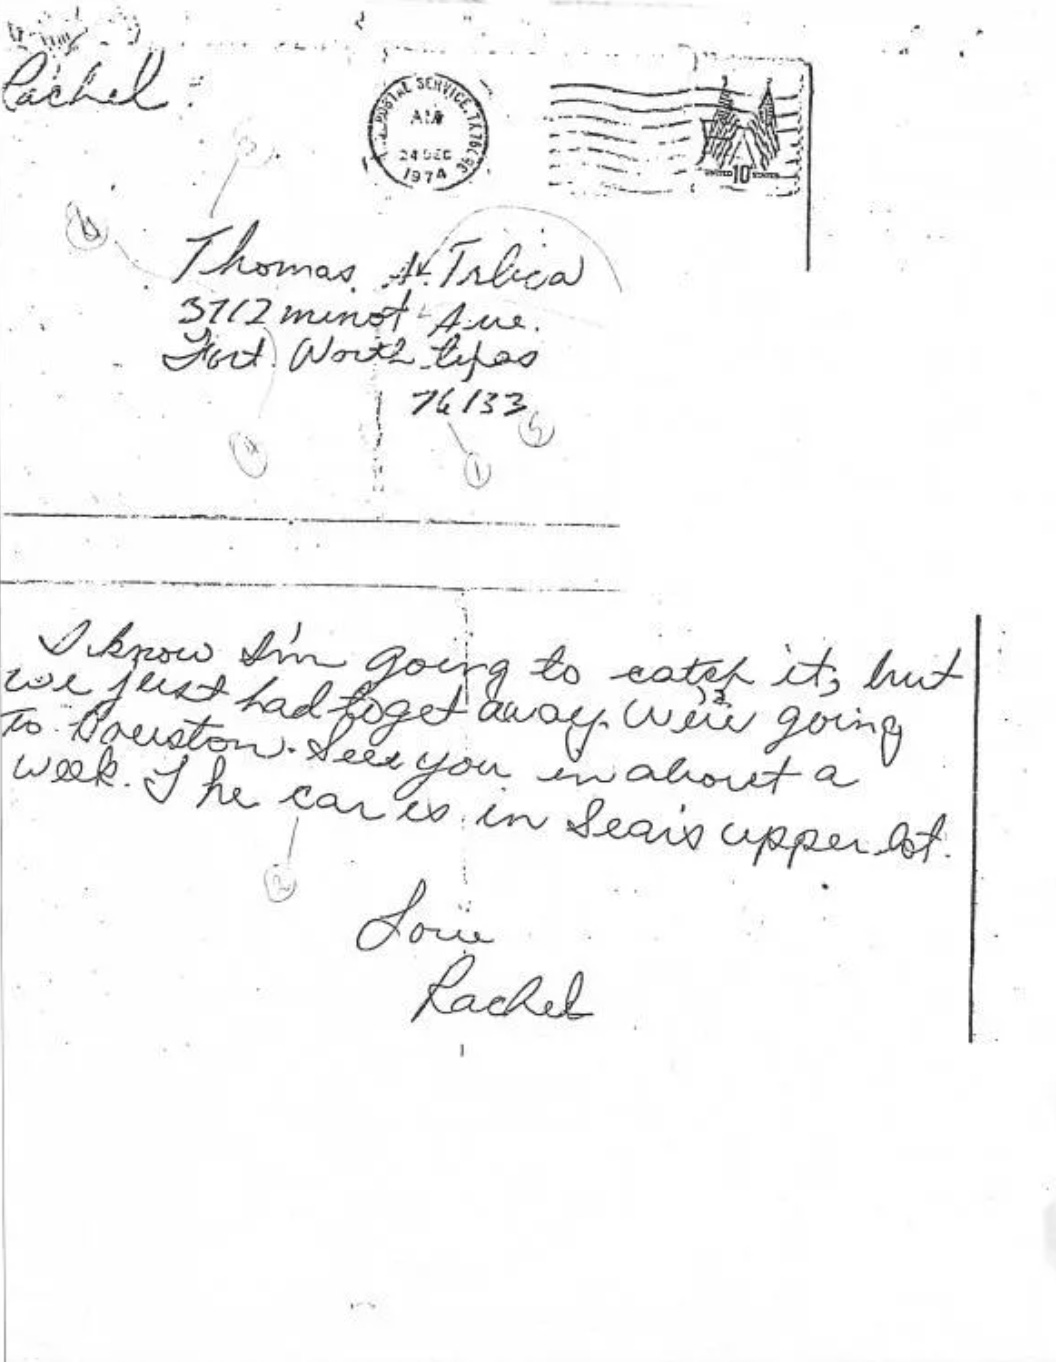 Rachel
U.S. POSTAL SERVICE, TX
AM
24 DEC
1974
UNITED 10c STATES
Thomas A. Trlica
3712 minot Ave.
Fort Worth Texas
76133
3
4
5
1
I know I'm going to catch it, but
we just had to get away. We're going
to Houston. See you in about a
week. The car is in Sear's upper lot.
2
Love
Rachel